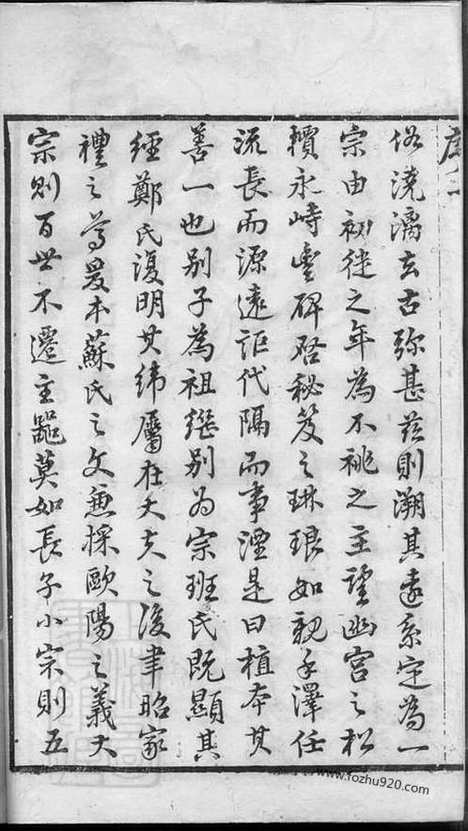 序二
俗澆漓去古弥甚茲則溯其遠系定為一
宗由初徙之年為不祧之主望幽宮之松
檟永峙豐碑啓秘笈之琳琅如親手澤任
流長而源遠詎代隔而事湮是曰植本其
善一也別子為祖继別为宗班氏既顯其
經鄭氏復明其緯屬在大夫之後聿昭家
禮之萬爰本蘇氏之文兼採歐陽之義大
宗則百世不遷主鬯莫如長子小宗則五
www.fozhu920.com